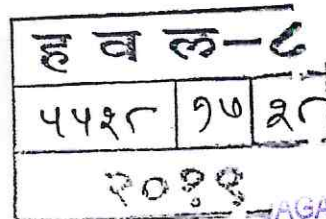 ह व ल-८
५५२८ १७ २८
२०११
AGA